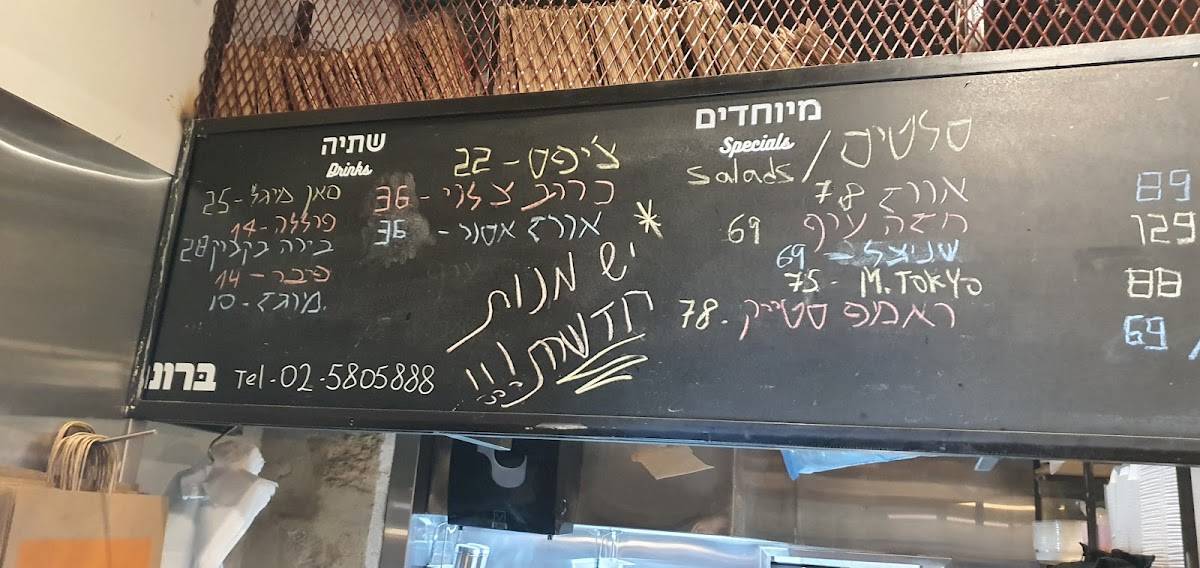 מיוחדים
Specials
סלטים / Salads
אורז 78
חזה עוף 69
שניצל - 69
M. TOKYO - 75
ראמפ סטייק - 78
89
129
88
69
צ'יפס - 22
כרוב צלוי - 36
אורז אסור - 36
* יש מנות
חדשות !!!
שתיה
Drinks
סאן מיגל - 25
פרללה - 14
בירה בקבוק 28
פיבר - 14
מוגז - 10
ברונ
Tel - 02-5805888